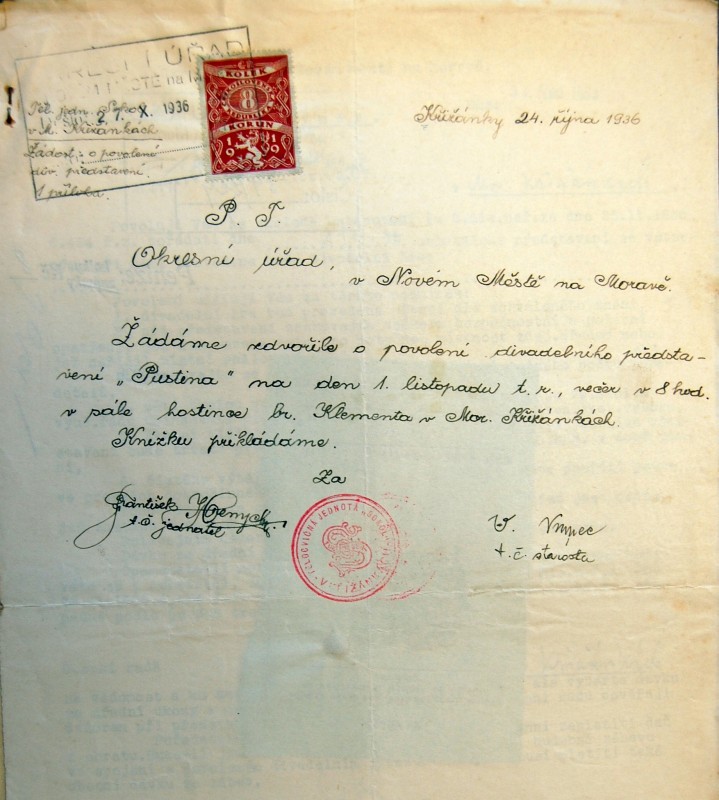 ÚŘAD
27. X. 1936
v M. Křižánkách
Žádost o povolení
div. představení.
1 příloha.
KOLEK
8
KORUN
Křižánky 24. října 1936
P. T.
Okresní úřad,
v Novém Městě na Moravě.
Žádáme zdvořile o povolení divadelního předsta-
vení „Pustina" na den 1. listopadu t. r., večer v 8 hod.
v sále hostince br. Klementa v Mor. Křižánkách.
Knížku přikládáme.
Za
František
t. č. jednatel
TĚLOCVIČNÁ JEDNOTA „SOKOL"
V.
t. č. starosta